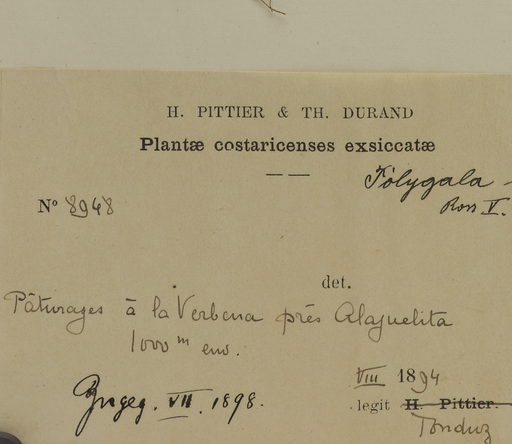 H. PITTIER & TH. DURAND
Plantæ costaricenses exsiccatæ
Polygala -
Ross V.
Nº 8948
det.
Pâturages à la Verbena près Alajuelita
1000 m env.
VIII 1894
legit H. Pittier.
Tonduz
Jngeg. VII. 1898.